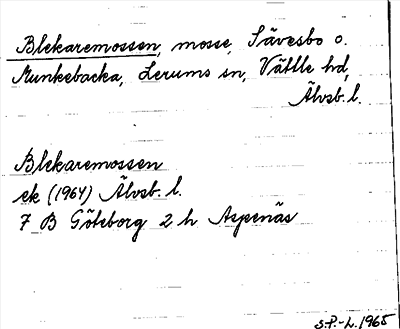 Blekaremossen, mosse, Sävesbo o.
Munkebacka, Lerums sn, Vättle hd,
Älvsb. l.
Blekaremossen
ek (1964) Älvsb. l.
7 B Göteborg 2 h Aspenäs
S.P.-L. 1965